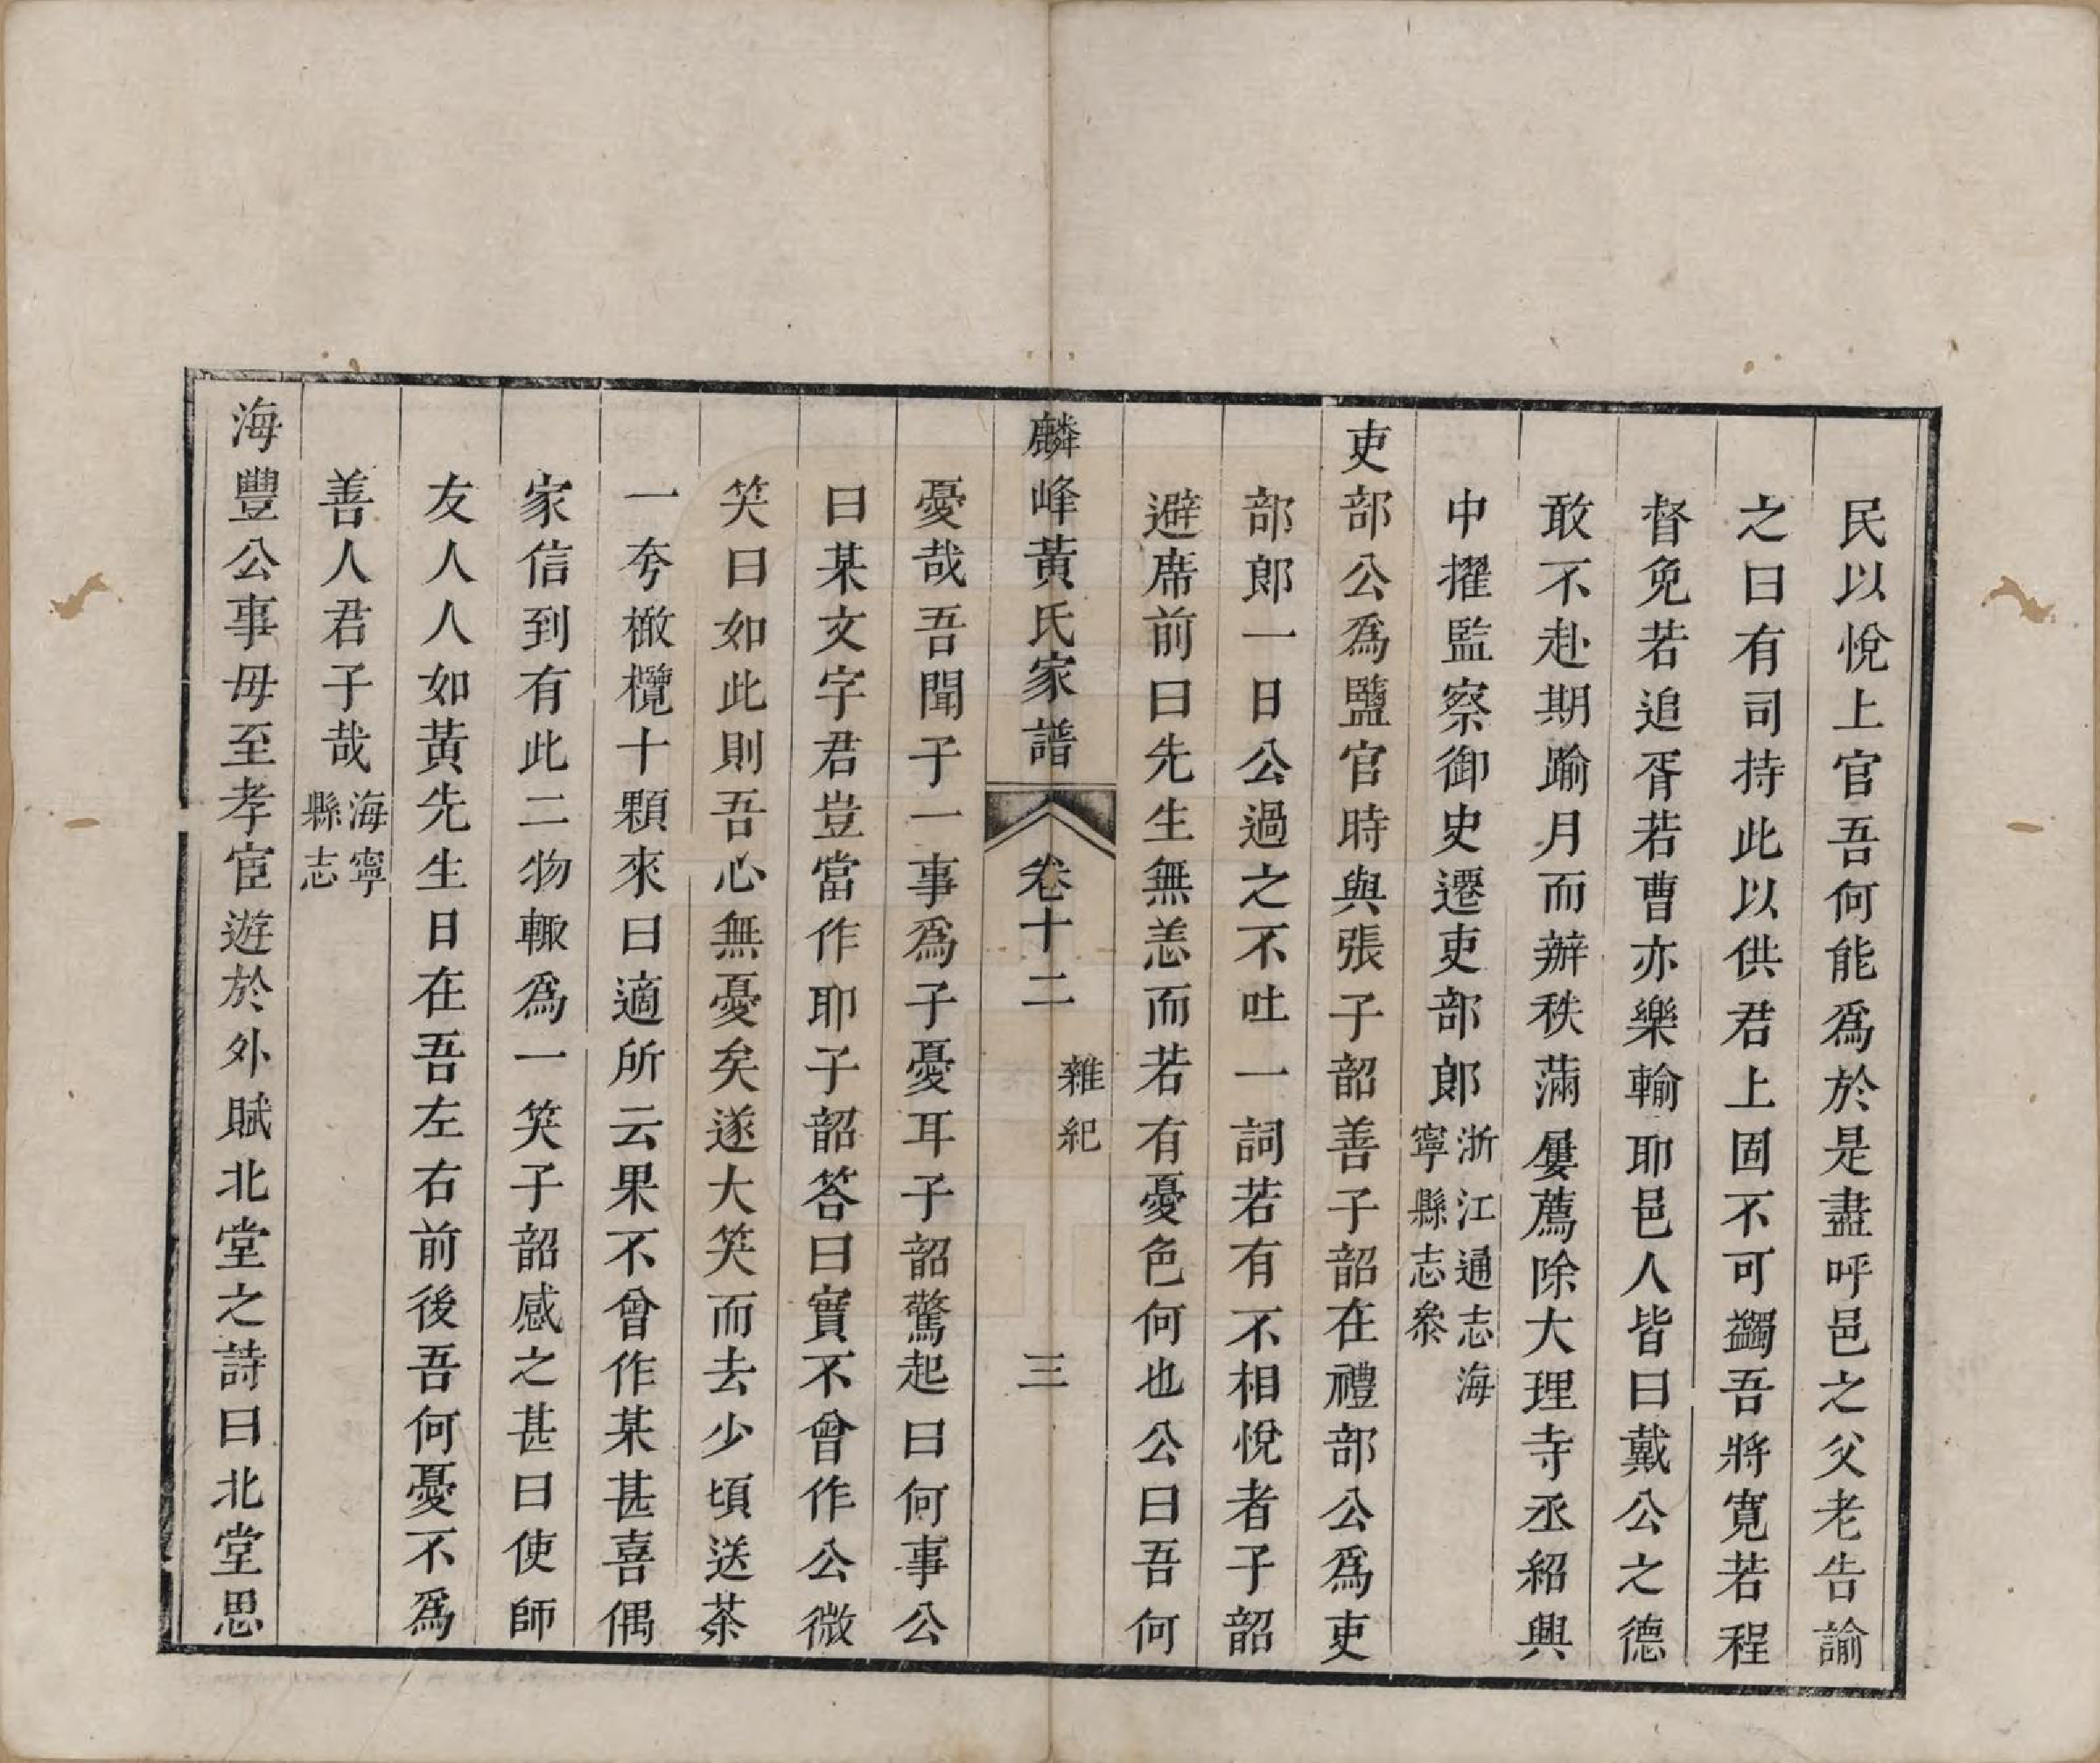 民以悅上官吾何能爲於是盡呼邑之父老告諭
之曰有司持此以供君上固不可蠲吾將寬若程
督免若追胥若曹亦樂輸耶邑人皆曰戴公之德
敢不赴期踰月而辦秩滿屢薦除大理寺丞紹興
中擢監察御史遷吏部郎浙江通志海
寧縣志叅
吏部公爲鹽官時與張子韶善子韶在禮部公爲吏
部郎一日公過之不吐一詞若有不相悅者子韶
避席前曰先生無恙而若有憂色何也公曰吾何
麟峰黃氏家譜 卷十二 雜紀 三
憂哉吾聞子一事爲子憂耳子韶驚起曰何事公
曰某文字君豈當作耶子韶答曰實不曾作公微
笑曰如此則吾心無憂矣遂大笑而去少頃送茶
一夸橄欖十顆來曰適所云果不曾作某甚喜偶
家信到有此二物輙爲一笑子韶感之甚曰使師
友人人如黃先生日在吾左右前後吾何憂不爲
善人君子哉海寧
縣志
海豐公事母至孝宦遊於外賦北堂之詩曰北堂思